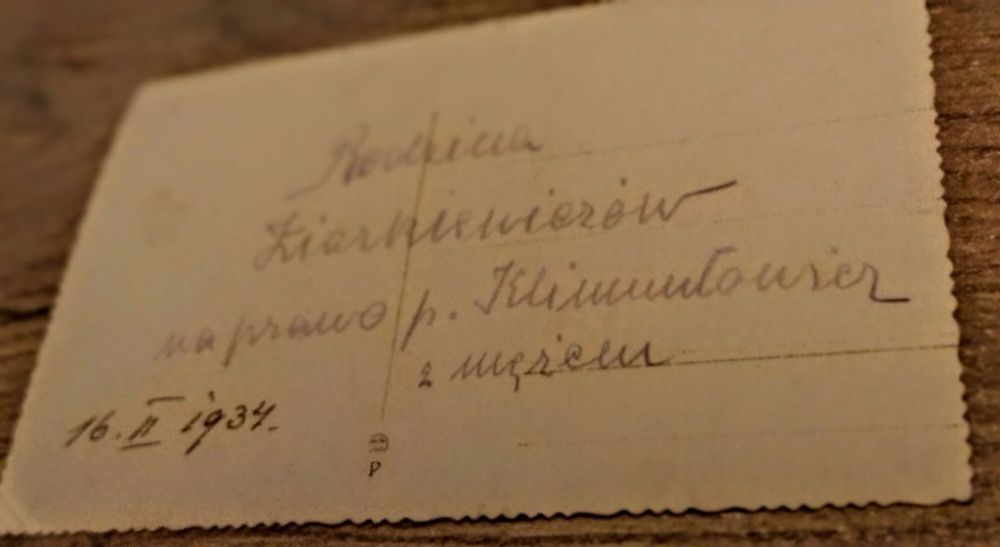 Rodzina
Ziarkiewiczów
na prawo p. Klimuntowicz
z mężem
16. II 1934.
P